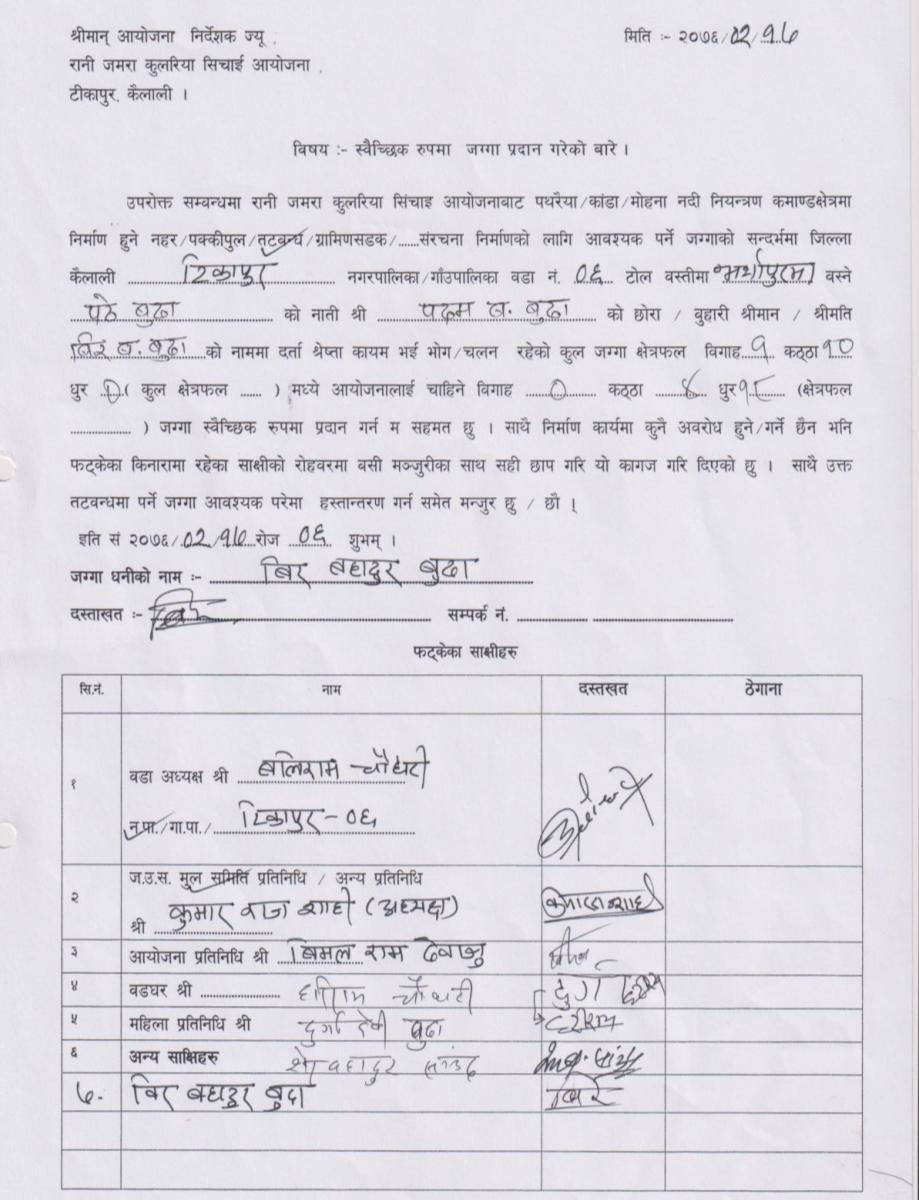 श्रीमान् आयोजना निर्देशक ज्यू , मिति :- २०७६/02/१७
रानी जमरा कुलरिया सिचाई आयोजना ,
टीकापुर, कैलाली ।
विषय :- स्वैच्छिक रुपमा जग्गा प्रदान गरेको बारे ।
उपरोक्त सम्बन्धमा रानी जमरा कुलरिया सिंचाइ आयोजनाबाट पथरैया/कांडा/मोहना नदी नियन्त्रण कमाण्डक्षेत्रमा
निर्माण हुने नहर/पक्कीपुल/तटबन्ध/ग्रामिणसडक/......संरचना निर्माणको लागि आवश्यक पर्ने जग्गाको सन्दर्भमा जिल्ला
कैलाली टिकापुर नगरपालिका/गाँउपालिका वडा नं. ०६ टोल वस्तीमा वस्ने
पठे बुढा को नाती श्री पदम ब. बुढा को छोरा / बुहारी श्रीमान / श्रीमति
बिर ब. बुढा को नाममा दर्ता श्रेष्ता कायम भई भोग/चलन रहेको कुल जग्गा क्षेत्रफल विगाह १ कठ्ठा १०
धुर 0 ( कुल क्षेत्रफल ...... ) मध्ये आयोजनालाई चाहिने विगाह 0 कठ्ठा ४ धुर १८ (क्षेत्रफल
............... ) जग्गा स्वैच्छिक रुपमा प्रदान गर्न म सहमत छु । साथै निर्माण कार्यमा कुनै अवरोध हुने/गर्ने छैन भनि
फट्केका किनारामा रहेका साक्षीको रोहवरमा बसी मञ्जुरीका साथ सही छाप गरि यो कागज गरि दिएको छु । साथै उक्त
तटवन्धमा पर्ने जग्गा आवश्यक परेमा हस्तान्तरण गर्न समेत मन्जुर छु / छौ ।
इति सं २०७६/02/१७ रोज ०६ शुभम् ।
जग्गा धनीको नाम :- बिर बहादुर बुढा
दस्ताखत :- बिर सम्पर्क नं. .................. ..............................
फट्केका साक्षीहरु
सि.नं. नाम दस्तखत ठेगाना
१ वडा अध्यक्ष श्री बलिराम चौधरी
न.पा./गा.पा./ टिकापुर-०६
२ ज.उ.स. मुल समिति प्रतिनिधि / अन्य प्रतिनिधि
श्री कुमार राज शाही (अध्यक्ष)
३ आयोजना प्रतिनिधि श्री बिमल राम देवजु
४ वडघर श्री चौधरी दुर्गा
५ महिला प्रतिनिधि श्री दुर्गा देवी बुढा
६ अन्य साक्षिहरु बहादुर
७. बिर बहादुर बुढा बिर